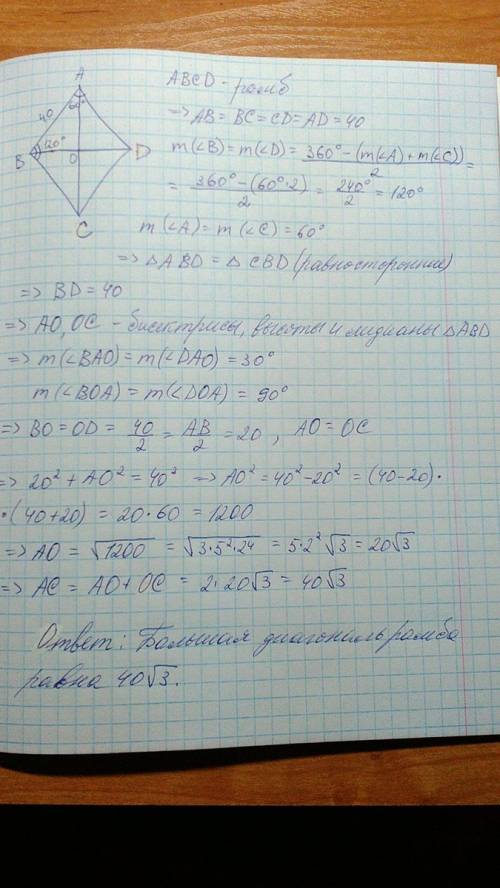 A
60°
40
120°
B
O
D
C
ABCD - ромб
=> AB = BC = CD = AD = 40
m(∠B) = m(∠D) = (360° - (m(∠A) + m(∠C)))/2 =
= (360° - (60°·2))/2 = 240°/2 = 120°
m(∠A) = m(∠C) = 60°
=> △ABD = △CBD (равносторонние)
=> BD = 40
=> AO, OC - бисектрисы, высоты и медианы △ABD
=> m(∠BAO) = m(∠DAO) = 30°
m(∠BOA) = m(∠DOA) = 90°
=> BO = OD = 40/2 = AB/2 = 20, AO = OC
=> 20² + AO² = 40² => AO² = 40² - 20² = (40-20)·
·(40+20) = 20·60 = 1200
=> AO = √1200 = √3·5²·2⁴ = 5·2²√3 = 20√3
=> AC = AO + OC = 2·20√3 = 40√3
Ответ: Большая диагональ ромба
равна 40√3.